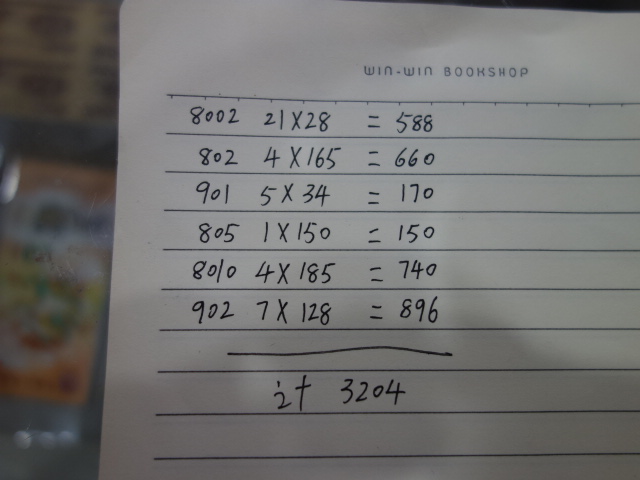 WIN-WIN BOOKSHOP
8002 21X28 = 588
802 4X165 = 660
901 5X34 = 170
805 1X150 = 150
8010 4X185 = 740
902 7X128 = 896
计 3204